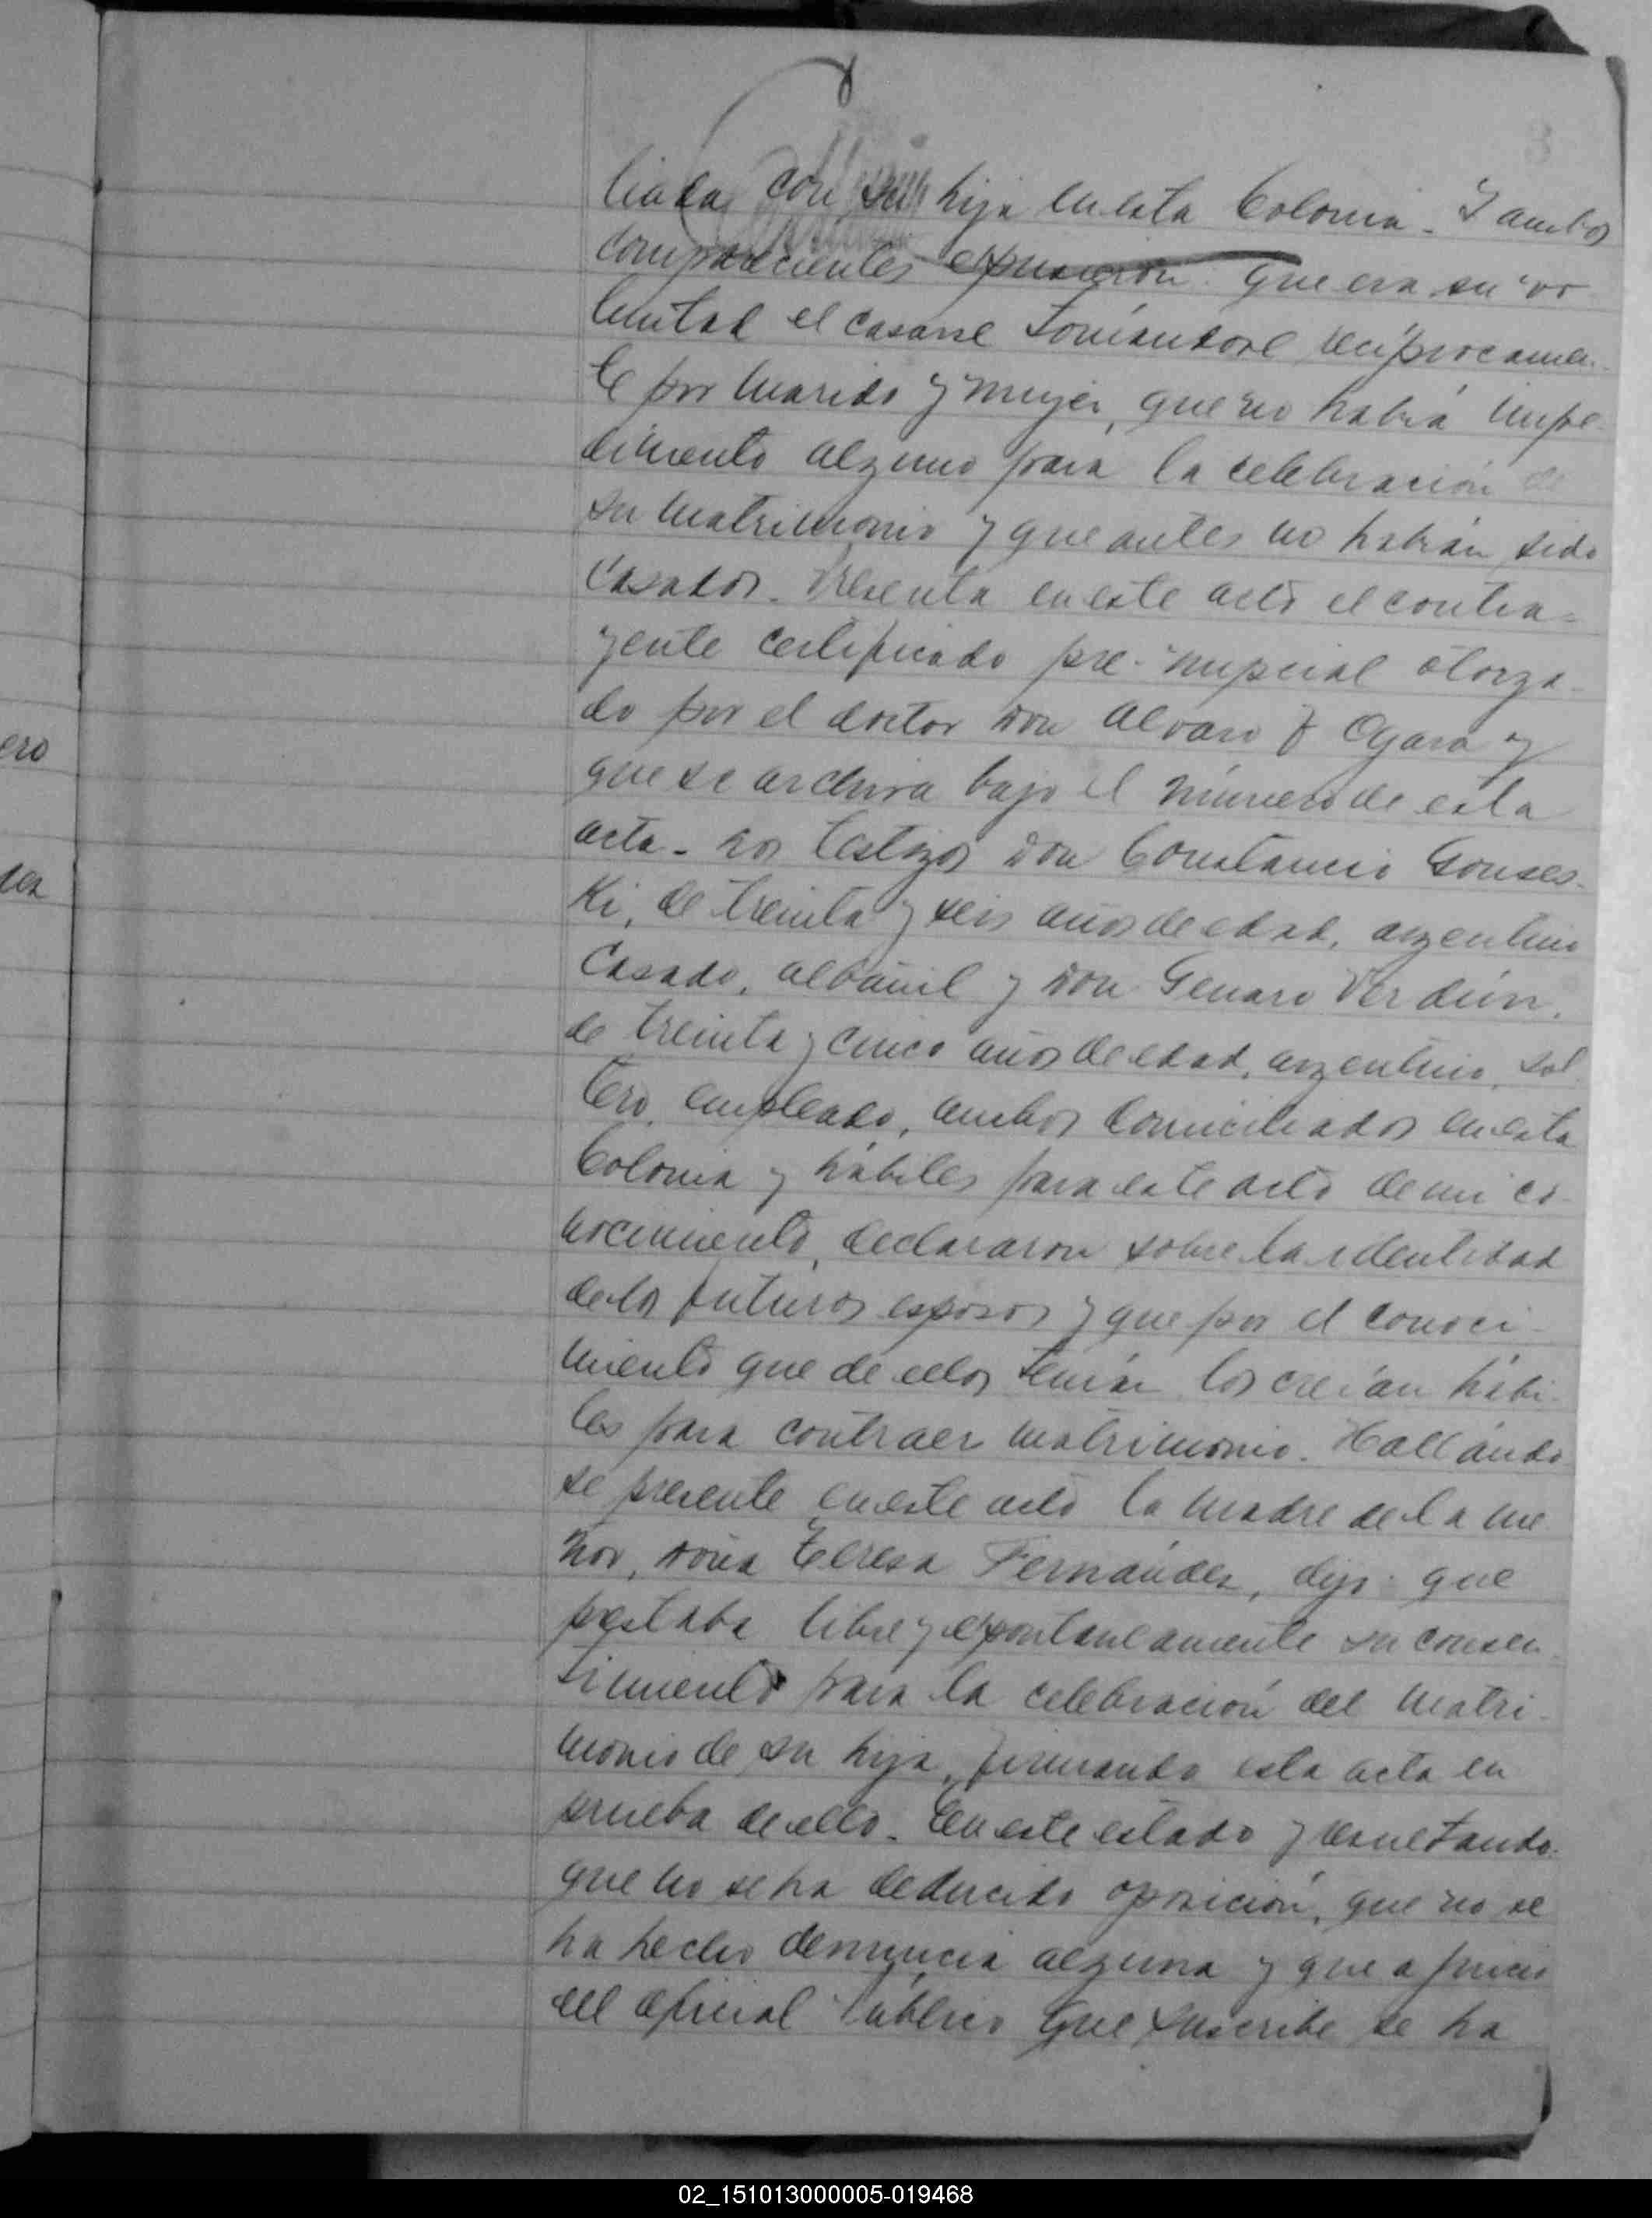 3
liada con su hija en esta Colonia. Y ambos
comparecientes expusieron: que era su vo
luntad el casarse tomándose recíprocamen-
te por marido y mujer, que no había impe-
dimento alguno para la celebración de
su matrimonio y que antes no habían sido
casados. Presenta en este acto el contra-
yente certificado pre-nupcial otorga-
do por el doctor don Alvaro F Ogara y
que se archiva bajo el número de esta
acta. Los testigos don Constancio Gonses-
ki, de treinta y seis años de edad, argentino
casado, albañil y don Genaro Verdún,
de treinta y cinco años de edad, argentino, sol
tero, empleado, ambos domiciliados en esta
Colonia y hábiles para este acto de mi co-
nocimiento, declararon sobre la identidad
de los futuros esposos y que por el conoci-
miento que de ellos tenían los creían hábi-
les para contraer matrimonio. Hallándo
se presente en este acto la madre de la me
nor, doña Teresa Fernández, dijo: que
prestaba libre y espontaneamente su consen
timiento para la celebración del matri-
monio de su hija, firmando esta acta en
prueba de ello. En este estado y resultando
que no se ha deducido oposición, que no se
ha hecho denuncia alguna y que a juicio
del oficial Público que suscribe se ha
ero
dez
02_151013000005-019468